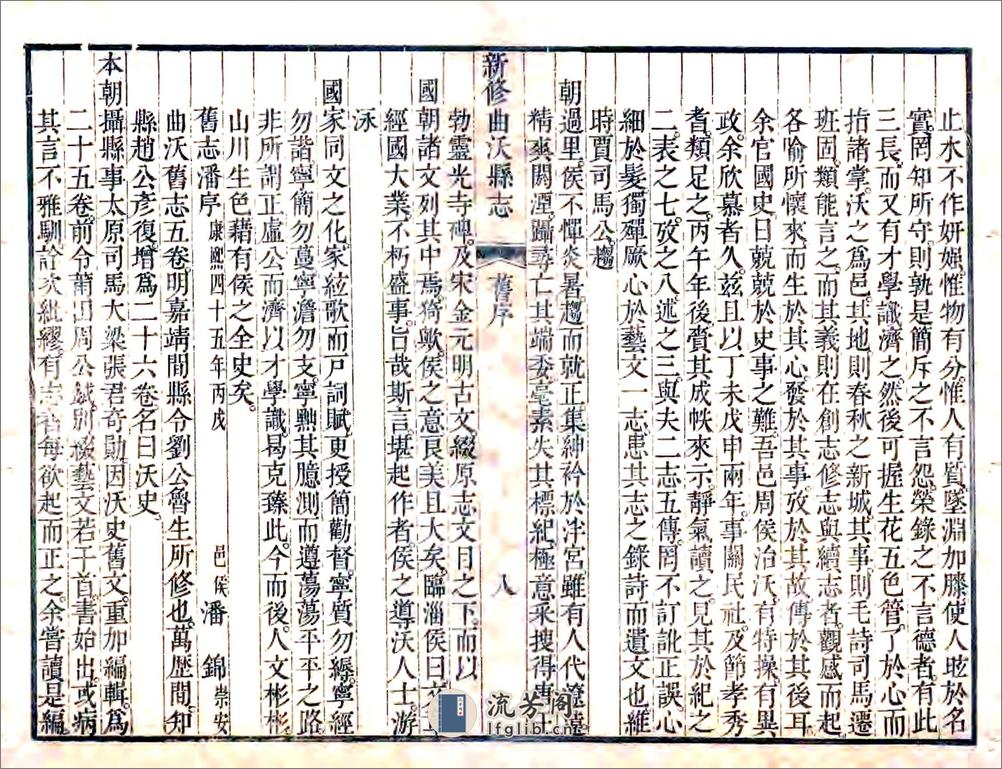 止水不作妍媸惟物有分惟人有質墜淵加膝使人眩於名
實罔知所守則孰是簡斥之不言怨榮錄之不言德者有此
三長而又有才學識濟之然後可握生花五色管了於心而
指諸掌沃之為邑其地則春秋之新城其事則毛詩司馬遷
班固類能言之而其義則在創志修志與續志者觀感而起
各喻所懷來而生於其心發於其事攷於其故傳於其後耳
余官國史日兢兢於史事之難吾邑周侯治沃有特操有異
政余欣慕者久茲且以丁未戊申兩年事關民社及節孝秀
耆類足之丙午年後賚其成帙來示靜氣讀之見其於紀之
二表之七攷之八述之三與夫二志五傳罔不訂訛正誤心
細於髮獨殫厥心於藝文一志患其志之錄詩而遺文也維
時賈司馬公趨
朝過里侯不憚炎暑趨而就正集紳衿於泮宮雖有人代遼遠
精爽闕湮躡尋亡其端委毫素失其標紀極意采搜得唐
新修曲沃縣志 舊序 八
勃靈光寺碑及宋金元明古文綴原志文目之下而以
國朝諸文列其中焉猗歟侯之意良美且大矣臨淄侯曰文
經國大業不朽盛事旨哉斯言堪起作者侯之導沃人士游
泳
國家同文之化家絃歌而戶詞賦更授簡勸督寧質勿縟寧經
勿諧寧簡勿蔓寧澹勿支寧黜其臆測而遵蕩蕩平平之路
非所謂正虛公而濟以才學識曷克臻此今而後人文彬彬
山川生色藉有侯之全史矣
舊志潘序 康熙四十五年丙戌 邑侯 潘錦 崇安
曲沃舊志五卷明嘉靖間縣令劉公魯生所修也萬歷間知
縣趙公彥復增為二十六卷名曰沃史
本朝攝縣事太原司馬大梁張君奇勛因沃史舊文重加編輯為
二十五卷前令莆田周公鉞別綴藝文若干首書始出或病
其言不雅馴詮次紕繆有志者每欲起而正之余嘗讀是編
流芳閣
lfglib.cn